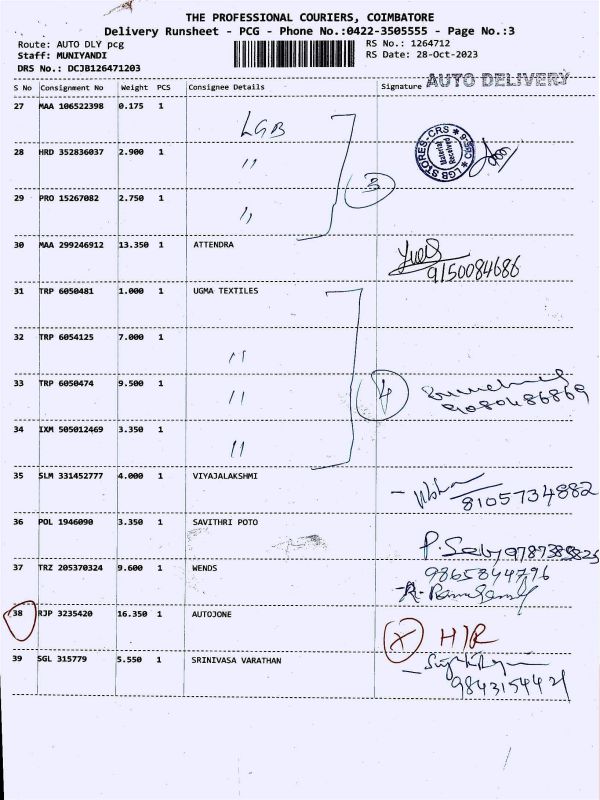 THE PROFESSIONAL COURIERS, COIMBATORE
Delivery Runsheet - PCG - Phone No.:0422-3505555 - Page No.:3
Route: AUTO DLY pcg
Staff: MUNIYANDI
DRS No.: DCJB126471203
RS No.: 1264712
RS Date: 28-Oct-2023
S No Consignment No Weight PCS Consignee Details Signature AUTO DELIVERY
27 MAA 106522398 0.175 1 LGB
28 HRD 352836037 2.900 1 "
LGB STORES-CRS * CBE-6 *
Material Received
29 PRO 15267082 2.750 1 "
3
30 MAA 299246912 13.350 1 ATTENDRA
9150084686
31 TRP 6050481 1.000 1 UGMA TEXTILES
32 TRP 6054125 7.000 1 "
33 TRP 6050474 9.500 1 "
4
9080486869
34 IXM 505012469 3.350 1 "
35 SLM 331452777 4.000 1 VIYAJALAKSHMI
8105734882
36 POL 1946090 3.350 1 SAVITHRI POTO
37 TRZ 205370324 9.600 1 WENDS
9865844796
38 RJP 3235420 16.350 1 AUTOJONE
X H/R
39 SGL 315779 5.550 1 SRINIVASA VARATHAN